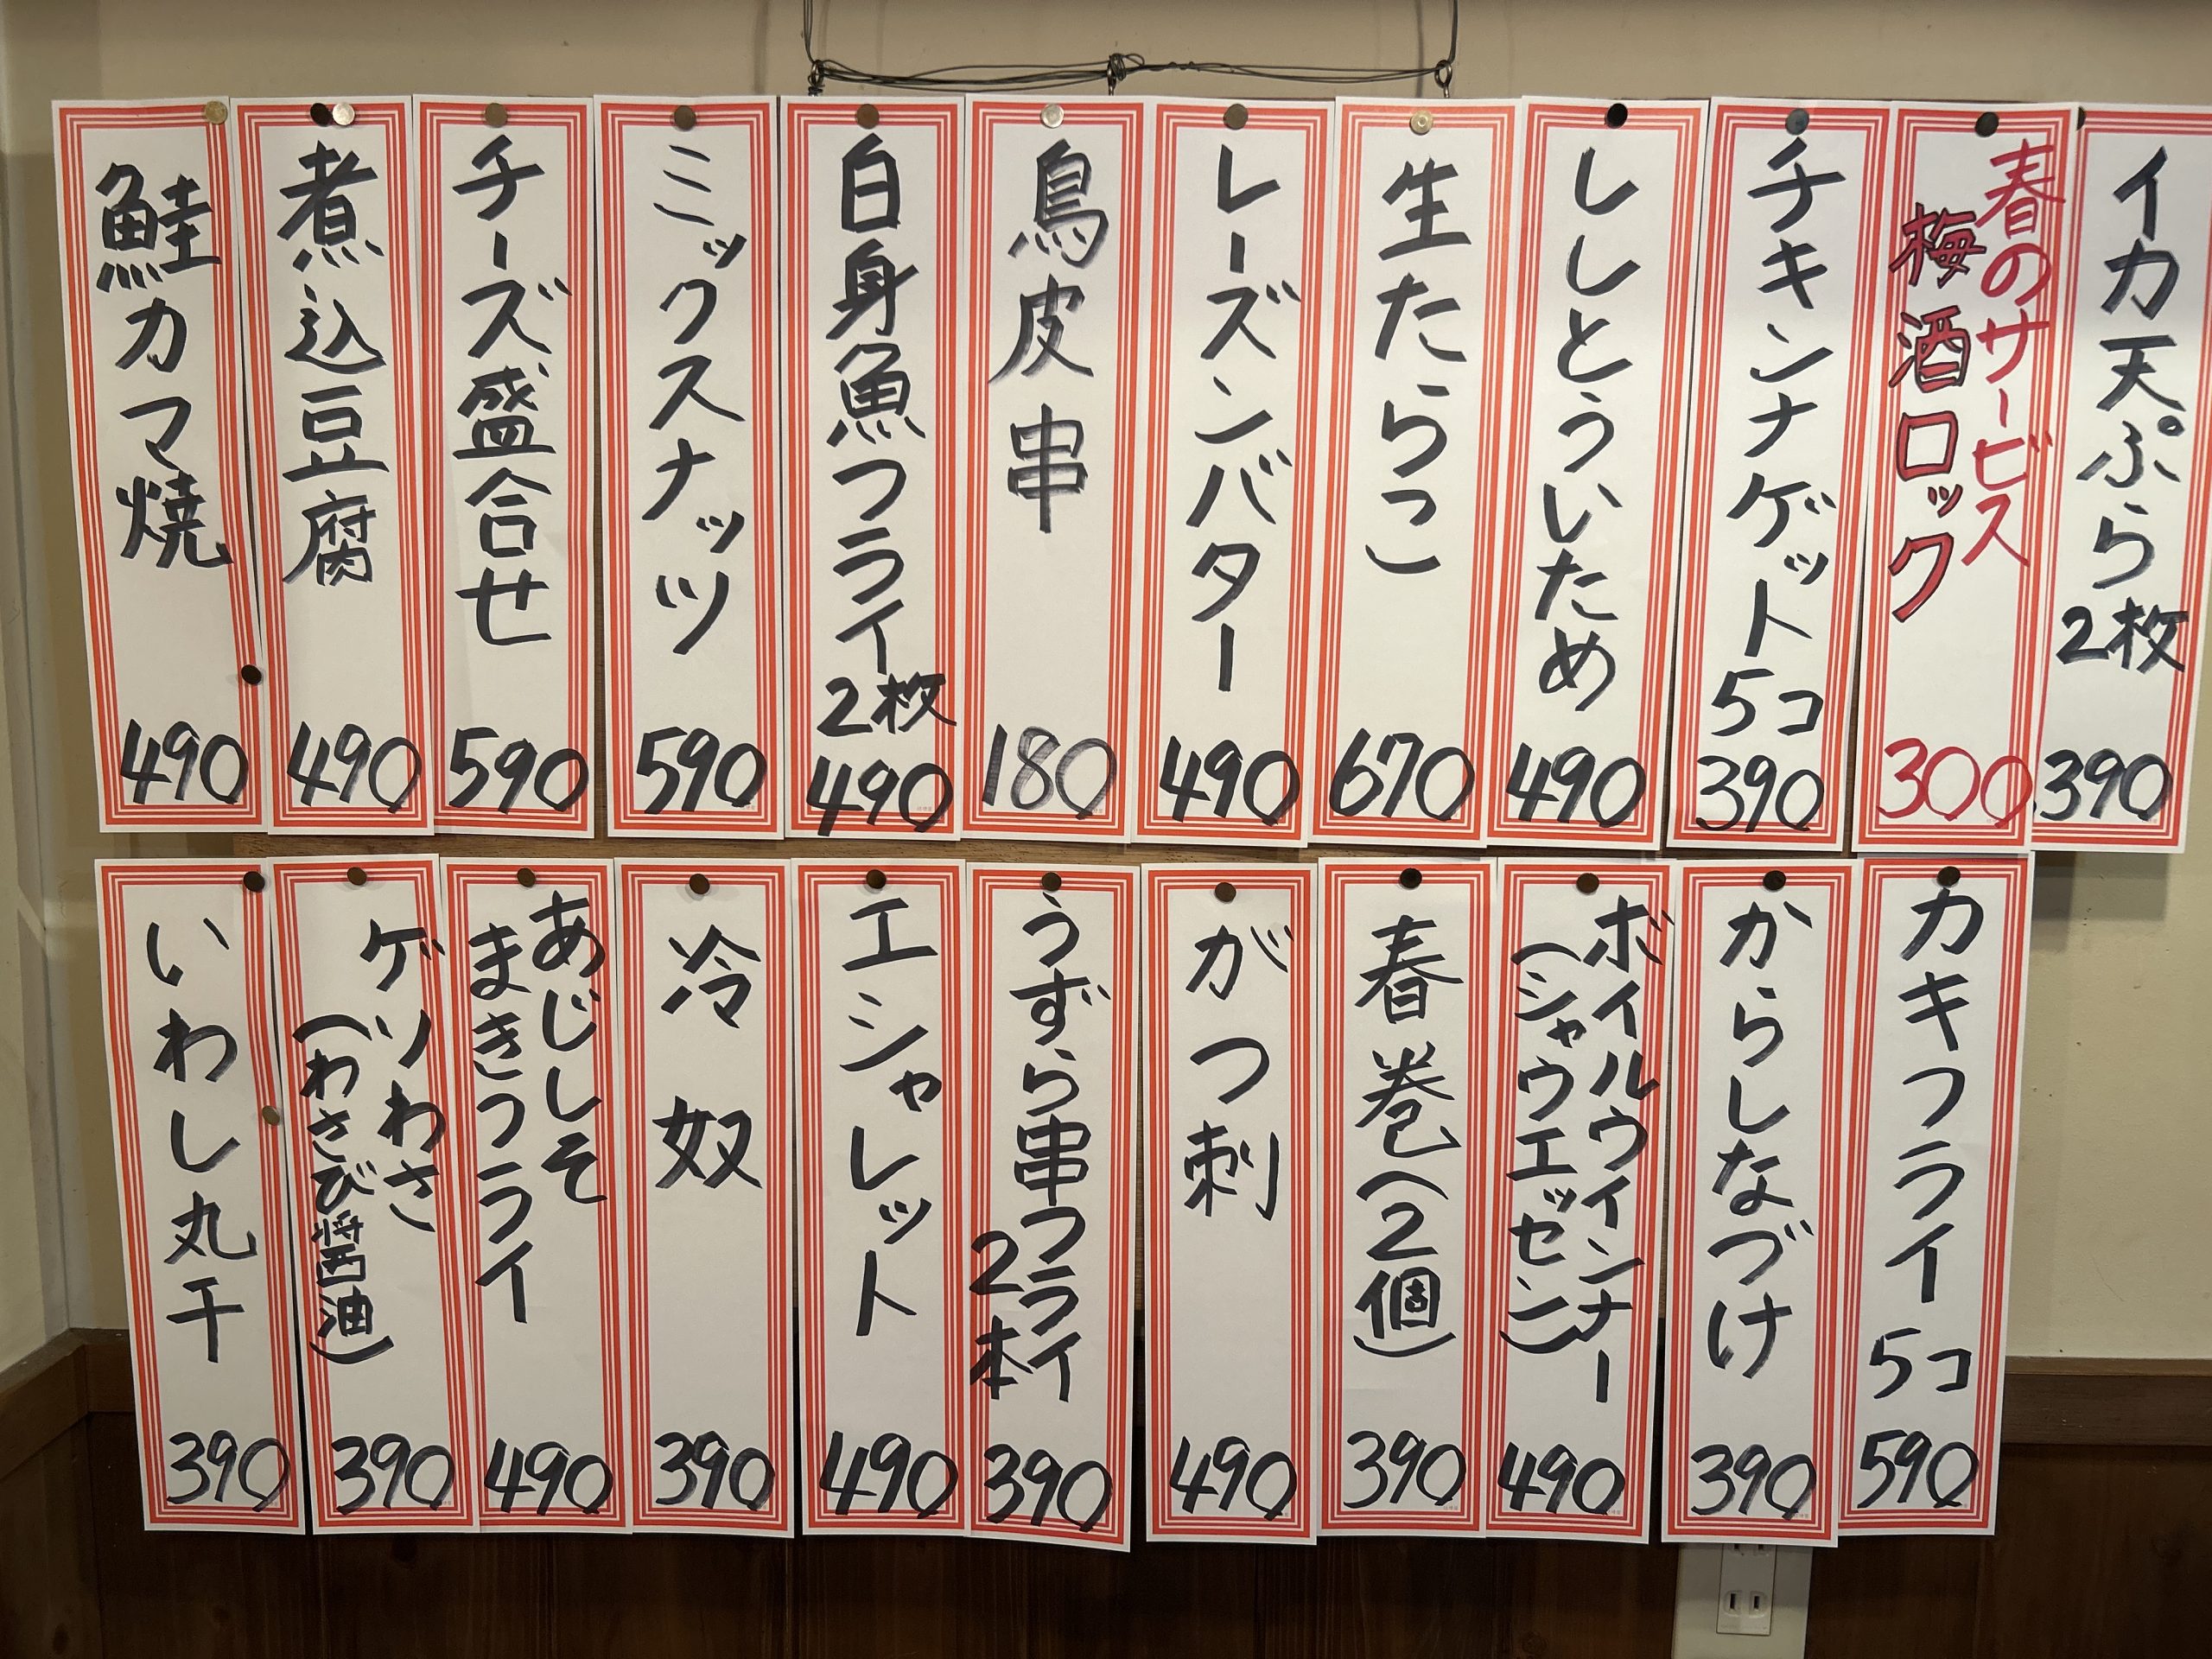 イカ天ぷら2枚
390
春のサービス
梅酒ロック
300
チキンナゲット5コ
390
ししとういため
490
生たらこ
670
レーズンバター
490
鳥皮串
180
白身魚フライ2枚
490
ミックスナッツ
590
チーズ盛合せ
590
煮込豆腐
490
鮭カマ焼
490
カキフライ5コ
590
からしなづけ
390
ボイルウインナー
(シャウエッセン)
490
春巻(2個)
390
がつ刺
490
うずら串フライ
2本
390
エシャレット
490
冷奴
390
あじしそ
まきフライ
490
ゲソわさ
(わさび醤油)
390
いわし丸干
390